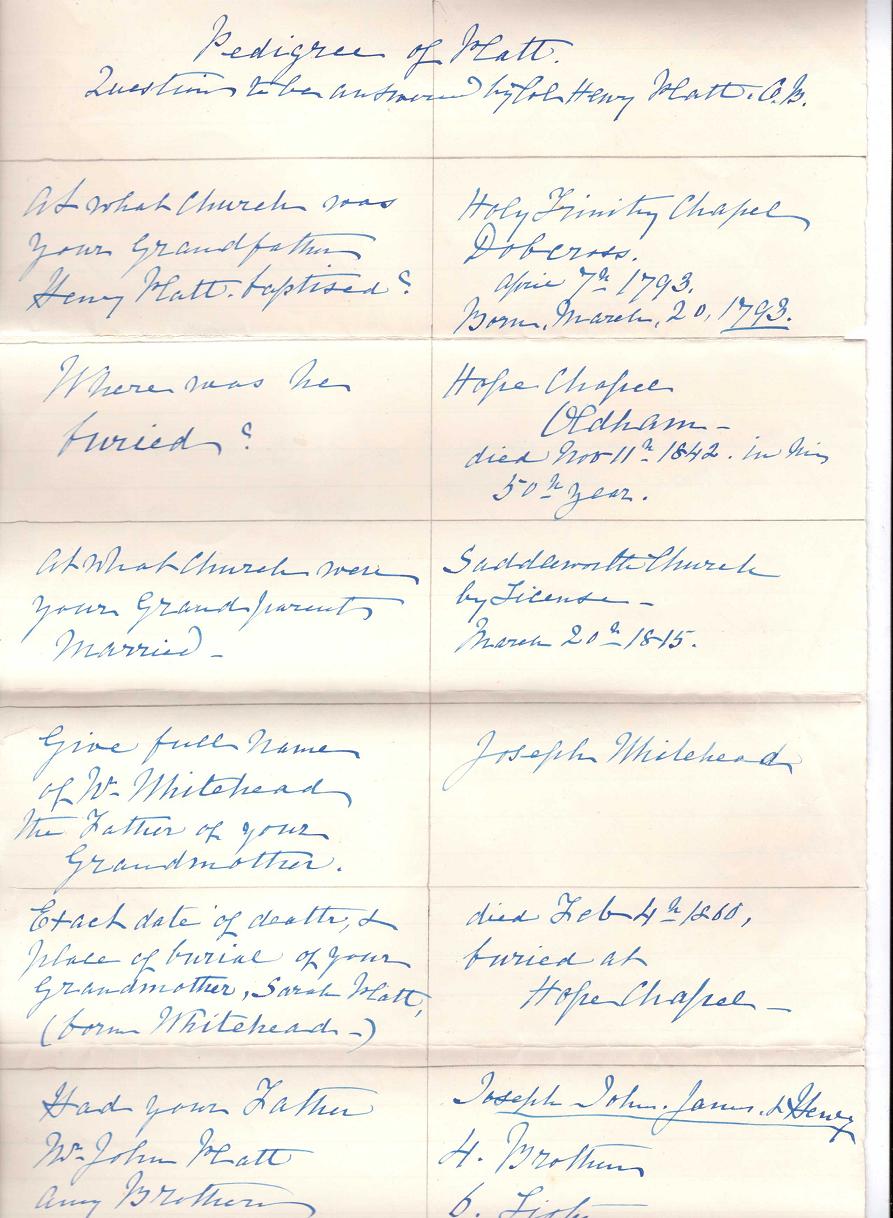 Pedigree of Platt.
Question to be answered by Col Henry Platt. C.B.
At what Church was
your Grandfather
Henry Platt. baptised?
Holy Trinity Chapel
Dobcross.
April 7th 1793.
Born, March, 20, 1793.
Where was he
buried?
Hope Chapel
Oldham –
died Nov 11th 1842. in his
50th year.
At what Church were
your Grand parents
Married –
Saddleworth Church
by License –
March 20th 1815.
Give full Name
of Mr Whitehead
the Father of your
Grandmother.
Joseph Whitehead
Exact date of death, &
place of burial of your
Grandmother, Sarah Platt,
(born Whitehead –)
died Feb 4th 1860,
buried at
Hope Chapel –
Had your Father
Mr John Platt
any Brothers
Joseph John. James. & Henry
4. Brothers
6. Sisters